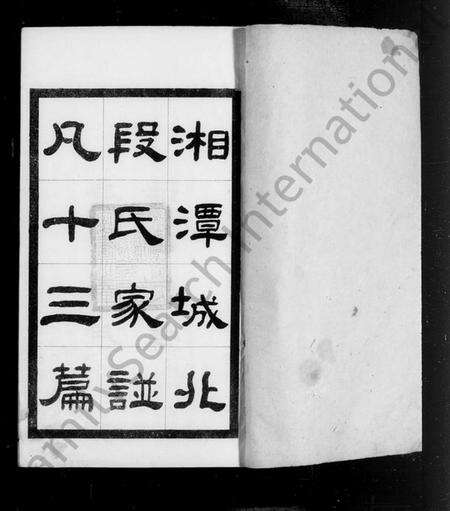 湘潭城北
段氏家諩
凡十三篇
FamilySearch International